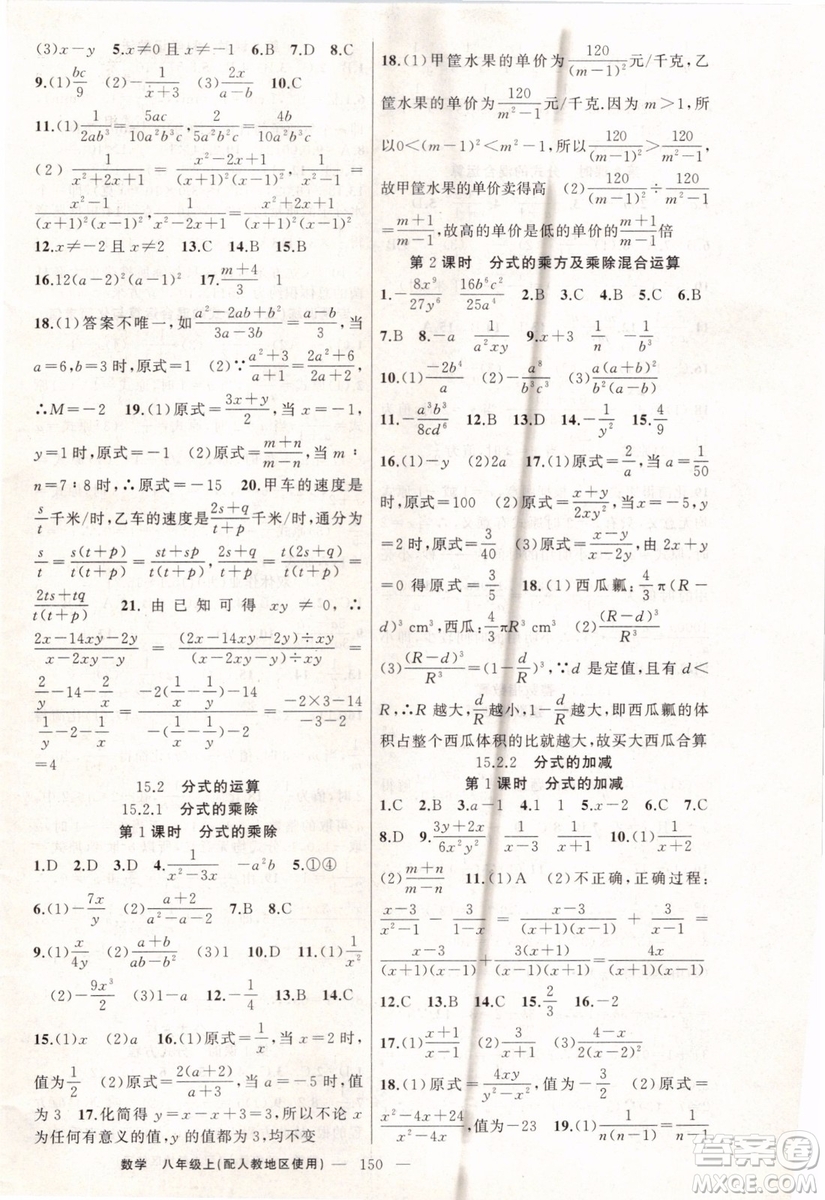 (3)x−y　5.x≠0 且 x≠−1　6.B　7.D　8.C
9.(1)bc/9　(2)−1/(x+3)　(3)2x/(a−b)　10.C
11.(1)1/(2ab³)=5ac/(10a²b³c)　2/(5a²b²c)=4b/(10a²b³c)
(2) 1/(x²+2x+1)=(x²−2x+1)/((x+1)²(x−1)²),
1/(x²−2x+1)=(x²+2x+1)/((x+1)²(x−1)²)
12.x≠−2 且 x≠2　13.C　14.B　15.B
16.12(a−1)²(a−2)　17.(m+4)/3　1
18.(1)答案不唯一,如(a²−2ab+b²)/(3a−3b)=(a−b)/3,当
a=6,b=3 时,原式=1　(2)∵(a²+3)/(a+1)=(2a²+6)/(2a+2),
∴M=−2　19.(1)原式=(3x+y)/2,当 x=−1,
y=1 时,原式=−1　(2)原式=(m+n)/(m−n),当 m∶
n=7∶8 时,原式=−15　20.甲车的速度是
s/t千米/时,乙车的速度是(2s+q)/(t+p)千米/时,通分为
s/t=s(t+p)/(t(t+p))=(st+sp)/(t(t+p)),(2s+q)/(t+p)=t(2s+q)/(t(t+p))=
(2ts+tq)/(t(t+p))　21.由已知可得 xy≠0,∴
(2x−14xy−2y)/(x−2xy−y)=((2x−14xy−2y)÷xy)/((x−2xy−y)÷xy)=
(2/y−14−2/x)/(1/y−2−1/x)=(−2(1/x−1/y)−14)/(−(1/x−1/y)−2)=(−2×3−14)/(−3−2)
=4
15.2　分式的运算
15.2.1　分式的乘除
第 1 课时　分式的乘除
1.D　2.D　3.D　4.1/(x²−3x)　−a²b　5.①④
6.(1)−7x/y　(2)(a+2)/(a²−a−2)　7.B　8.C
9.(1)x/y　(2)(a+b)/(a−b)　(3)1　10.D　11.(1)1/x
(2)−9x³/2　(3)1−a　12.B　13.B　14.C
15.(1)x　(2)a　16.(1)原式=1/x,当 x=2 时,
值为1/2　(2)原式=2(a+2)/(a+3),当 a=−5 时,值
为 3　17.化简得 y=x−x+3=3,所以不论 x
为任何有意义的值,y 的值都为 3,均不变
18.(1)甲筐水果的单价为120/(m−1)²元/千克,乙
筐水果的单价为120/(m²−1)元/千克.因为 m>1,所
以0<(m−1)²<m²−1,所以120/(m−1)²>120/(m²−1),
故甲筐水果的单价卖得高　(2)120/(m−1)²÷120/(m²−1)
=(m+1)/(m−1),故高的单价是低的单价的(m+1)/(m−1)倍
第 2 课时　分式的乘方及乘除混合运算
1.−8x⁹/(27y⁶)　16b⁶c²/(25a⁴)　2.B　3.B　4.C　5.C　6.B
7.B　8.−a/x　1/(a²xy)　9.x+3　1/n　−b/2
10.(1)−2b⁴/a　(2)−a⁸/(b³c³)　(3)a(a+b)²/b²
11.−a³b³/(8cd⁶)　12.B　13.D　14.−1/y²　15.4/9
16.(1)−y　(2)2a　17.(1)原式=2/a,当 a=1/50
时,原式=100　(2)原式=(x+y)/(2xy²),当 x=−5,y
=2 时,原式=3/40　(3)原式=(x−y)/(x−2y),由 2x+y
=0 得原式=3/5　18.(1)西瓜瓤:4/3π(R−
d)³ cm³,西瓜:4/3πR³ cm³　(2)(R−d)³/R³
(3)(R−d)³/R³=(1−d/R)³,∵d 是定值,且 d<
R,∴R 越大,d/R越小,1−d/R越大,即西瓜瓤的体
积占整个西瓜体积的比就越大,故买大西瓜合算
15.2.2　分式的加减
第 1 课时　分式的加减
1.C　2.B　3.a−1　4.1　1　5.x−2　6.C　7.C
8.D　9.(3y+2x)/(6x²y²)　1/(x+2)　10.(1)1/(x+1)
(2)(m+n)/(m−n)　11.(1)A　(2)不正确,正确过程:
(x−3)/(x²−1)−3/(1−x)=(x−3)/((x+1)(x−1))+3/(x−1)=
(x−3)/((x+1)(x−1))+3(x+1)/((x+1)(x−1))=4x/((x+1)(x−1))
12.C　13.C　14.C　15.2/3　16.−2
17.(1)(x+1)/(x−1)　(2)3/(x+1)　(3)4/(2−x)
18.(1)原式=4xy/(x²−y²),值为−3/2　(2)原式=
(x²−4x+24)/(x²−4),值为−4　19.(1)1/(n(n+1))=1/n−
数学　八年级上(配人教地区使用)　— 150 —
作业精灵